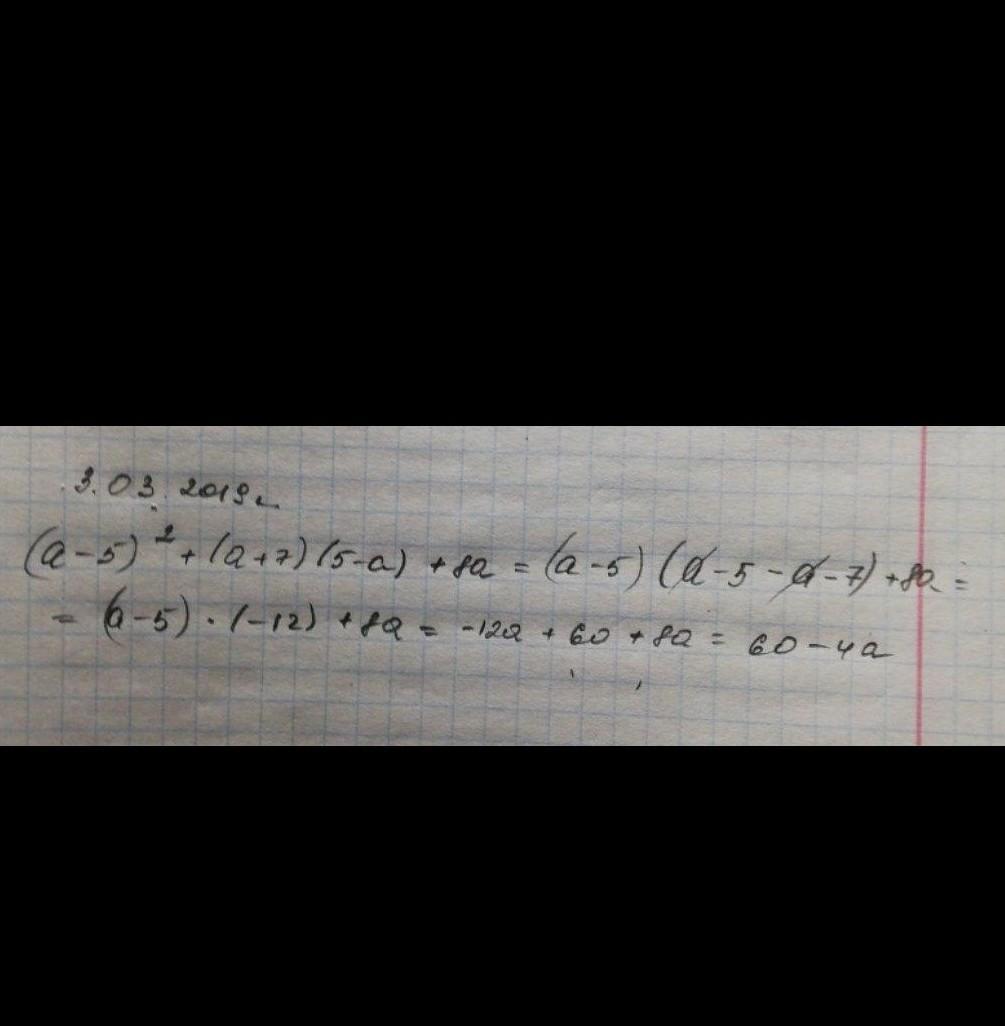 3.03.2019г.
(a-5)²+(a+7)(5-a)+8a=(a-5)(a-5-a-7)+8a=
=(a-5)·(-12)+8a=-12a+60+8a=60-4a